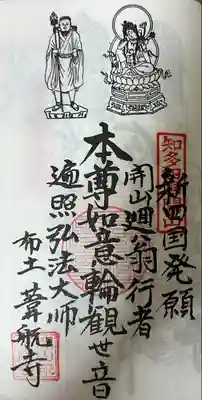 新四国発願
開山廻翁行者
本尊如意輪観世音
遍照弘法大師
布土 葦航寺
知多